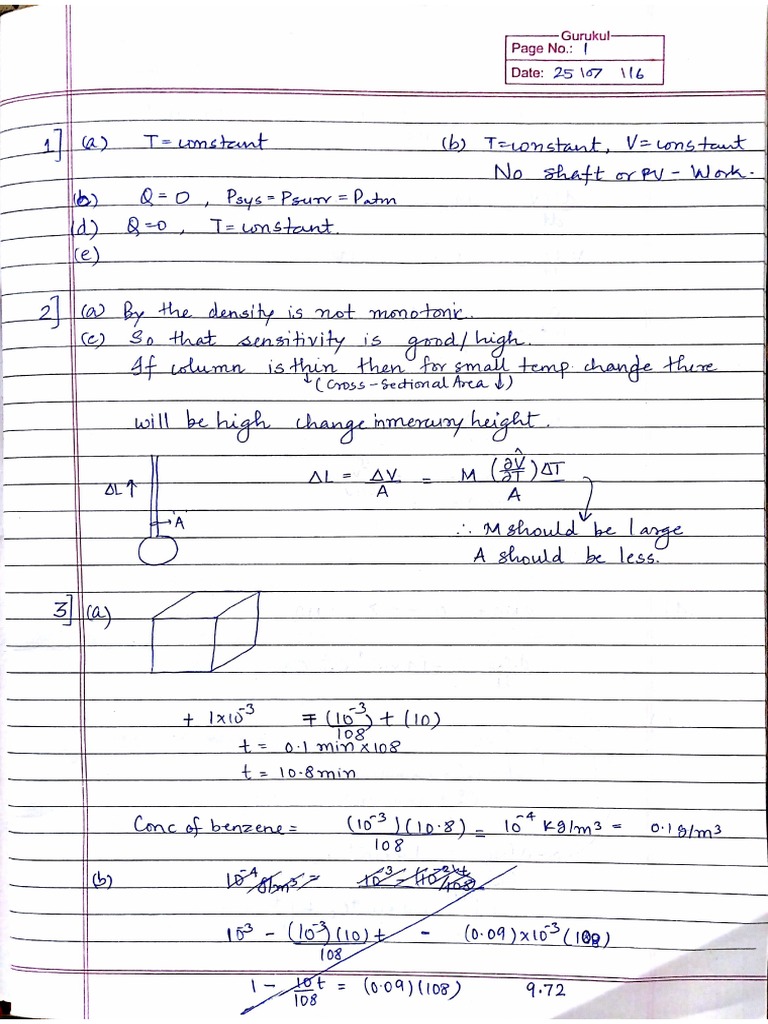 Gurukul
Page No.: 1
Date: 25/07/16
1] (a) T = constant (b) T=constant, V=constant
No shaft or PV - Work.
(b) Q = 0, Psys = Psurr = Patm
(d) Q=0, T=constant.
(e)
2] (a) By the density is not monotonic.
(c) So that sensitivity is good/high.
If column is thin then for small temp. change there
↓(cross-sectional Area ↓)
will be high change in mercury height.
ΔL↑
A
ΔL = ΔV/A = M (∂V̂/∂T)ΔT/A
∴ M should be large
A should be less.
3] (a)
+ 1×10⁻³ = (10⁻³)/108 t (10)
t = 0.1 min × 108
t = 10.8 min
Conc of benzene = (10⁻³)(10.8)/108 = 10⁻⁴ kg/m³ = 0.1 g/m³
(b)
10⁻³ - (10⁻³)(10)t/108 - (0.09)×10⁻³(108)
1 - 10t/108 = (0.09)(108) 9.72